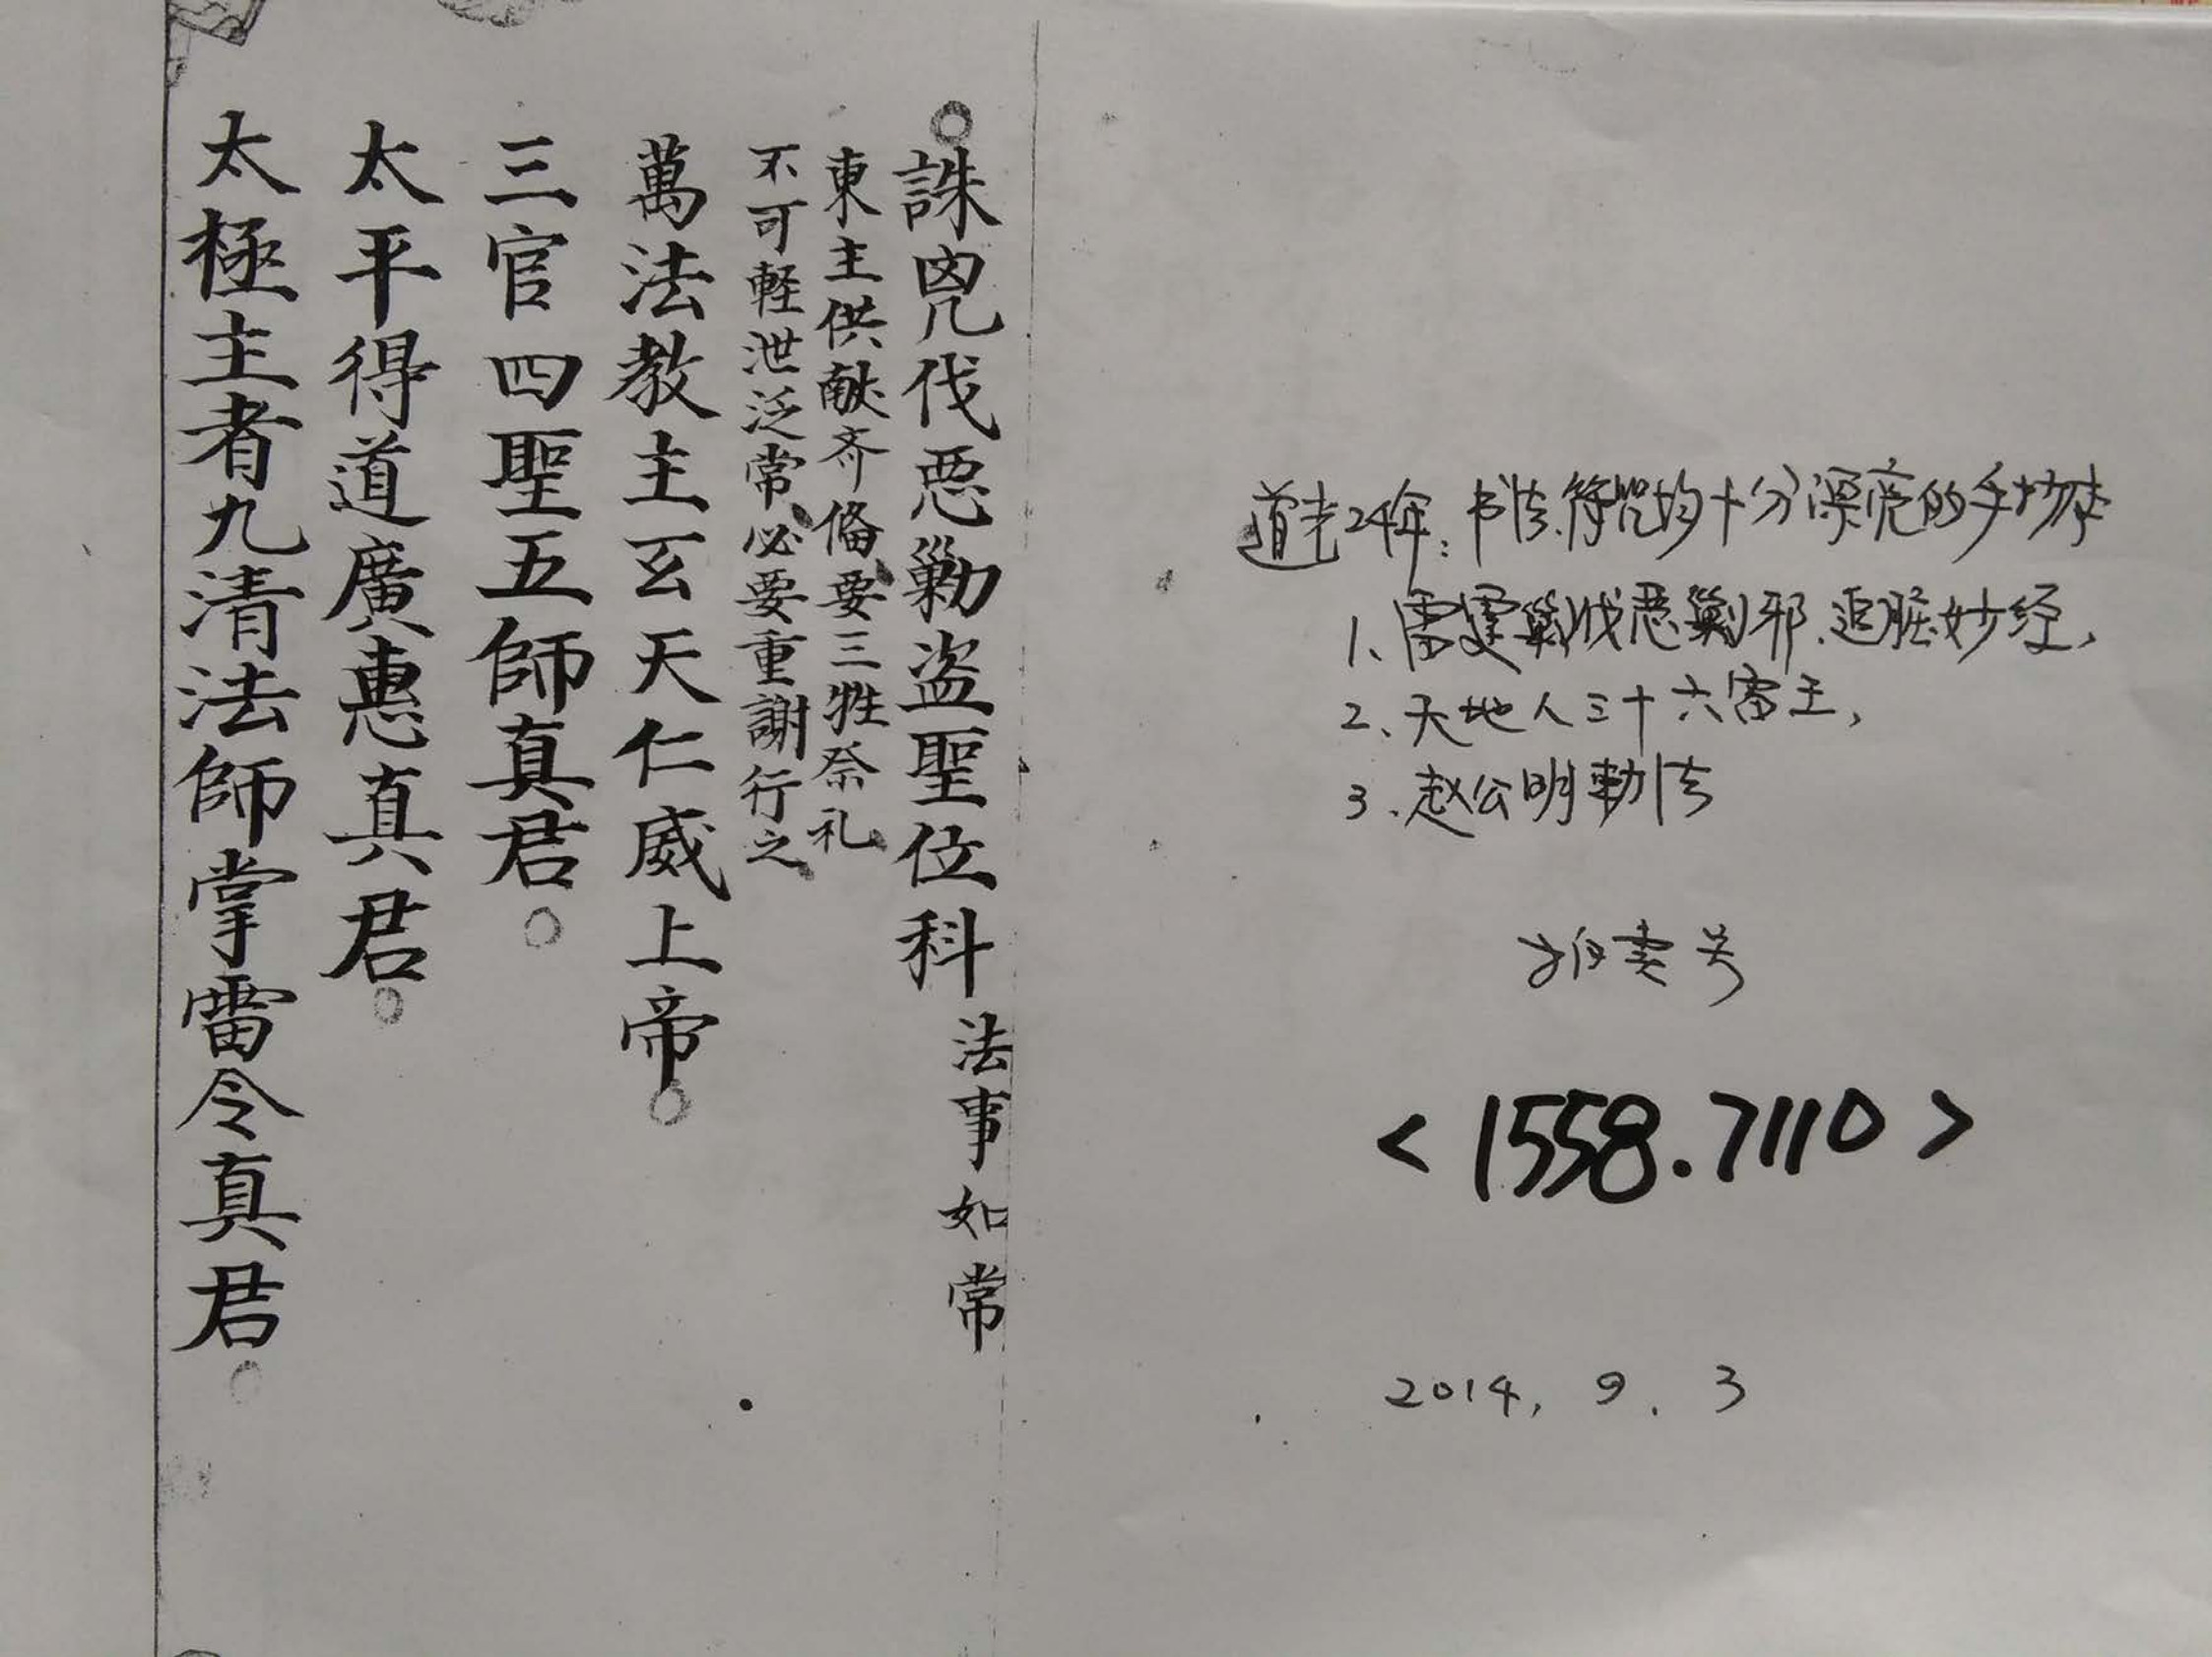 誅兇伐惡勦盜聖位科 法事如常
東主供献齐俻要三牲祭礼
不可軽泄泛常必要重謝行之
萬法教主玄天仁威上帝
三官四聖五師真君
太平得道廣惠真君
太極主者九清法師掌雷令真君
道光24年：书法.符咒均十分漂亮的手抄本
1、雷霆剿伐恶剿邪.追脏妙经，
2、天地人三十六雷王，
3、赵公明勅法
<1558.7110>
2014，9．3